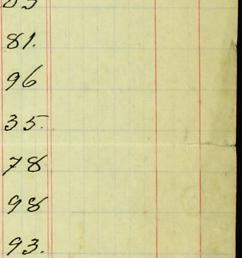 81.
96
35.
78
98
93.